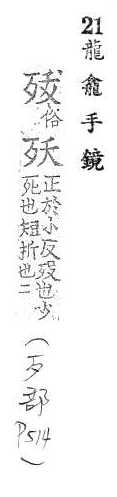 21 龍龕手鏡
俗 殀 正於小反歿也少
死也短折也二
(歹部 P514)